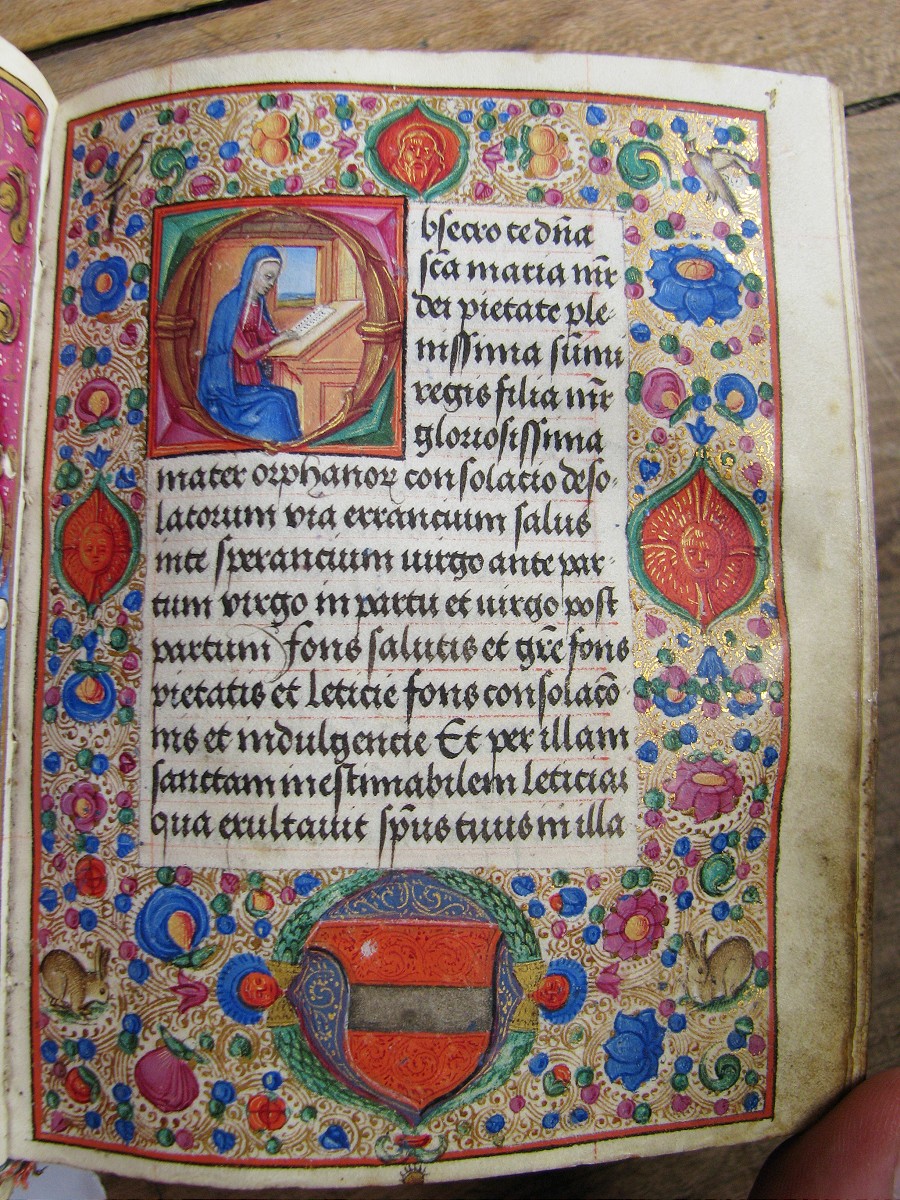 Obsecro te dña
sc̃a maria mr̃
dei pietate ple-
nissima sũmi
regis filia mr̃
gloriosissima
mater orphanoꝝ consolacio deso-
latorum via errancium salus
in te sperancium uirgo ante par-
tum virgo in partu et uirgo post
partum fons salutis et gr̃e fons
pietatis et leticie fons consolacõ-
nis et indulgencie Et per illam
sanctam inestimabilem leticiaz
qua exultauit sp̃us tuus in illa